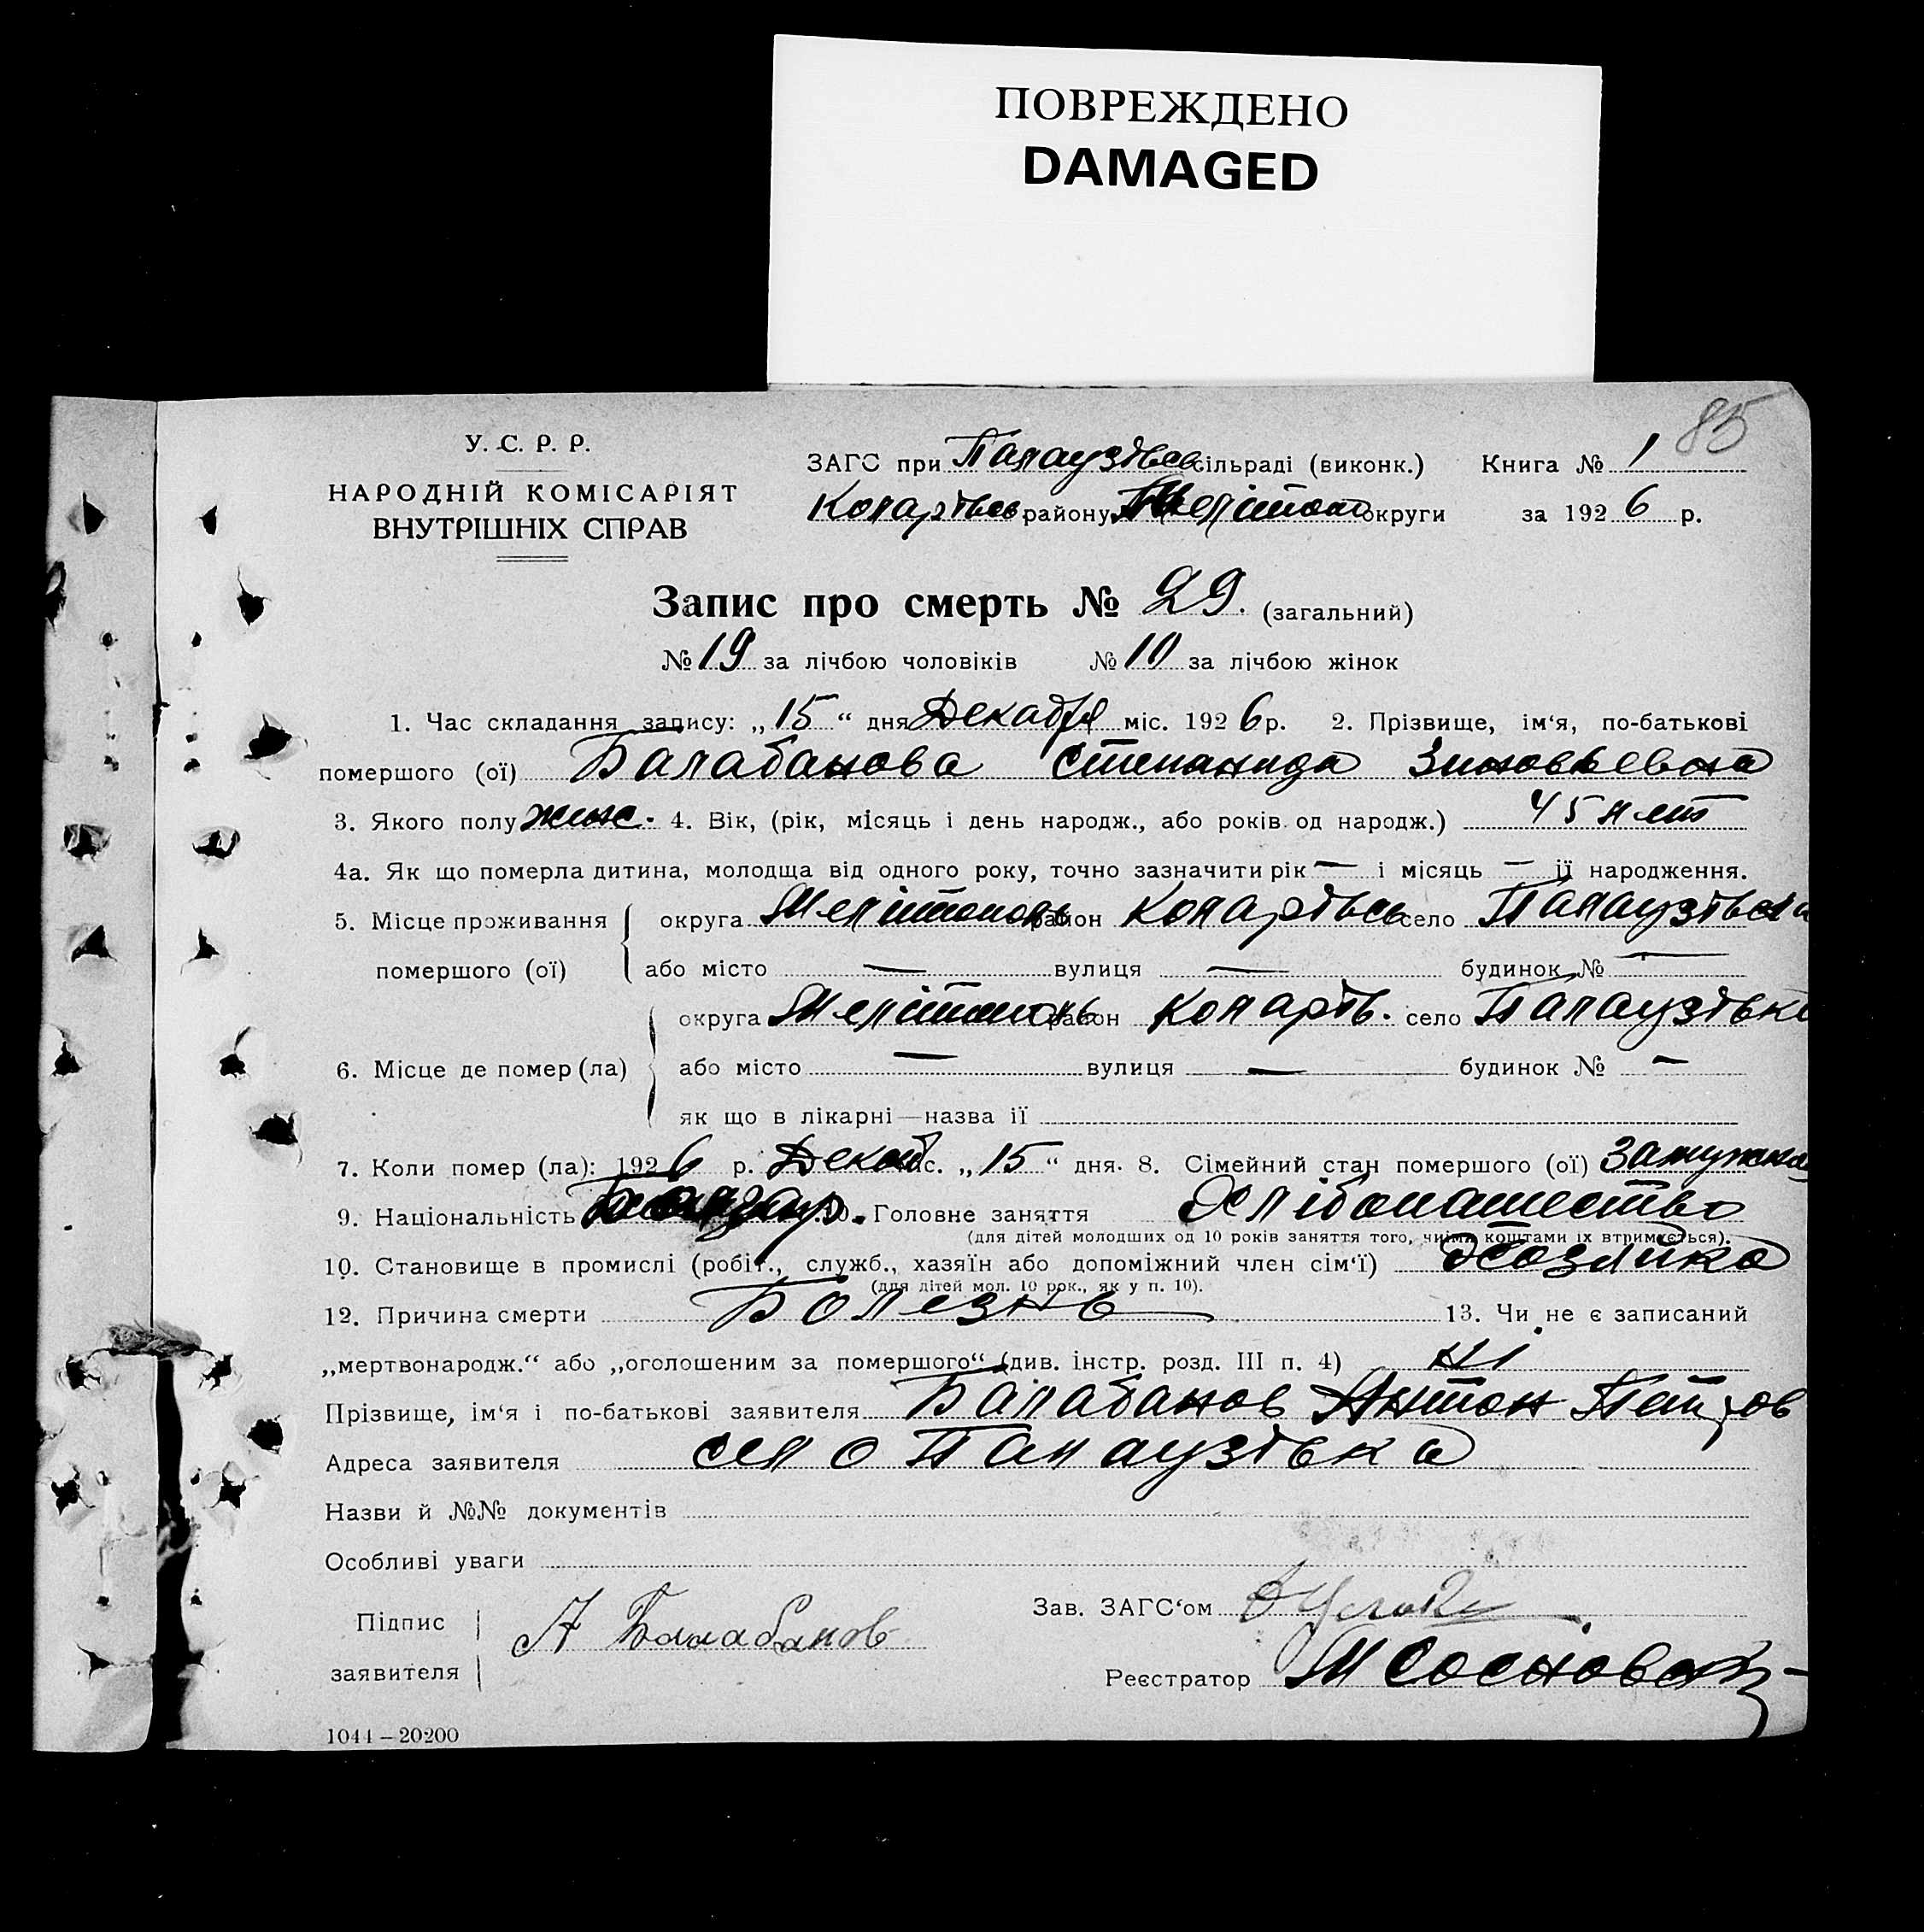 ПОВРЕЖДЕНО
DAMAGED
85
У. С. Р. Р.
НАРОДНІЙ КОМІСАРІЯТ
ВНУТРІШНІХ СПРАВ
ЗАГС при Палаузівсь сільраді (виконк.) Книга № 1
Коларівсь району Мелітоп округи за 1926 р.
Запис про смерть № 29. (загальний)
№ 19 за лічбою чоловіків № 10 за лічбою жінок
1. Час складання запису: „15“ дня Декабря міс. 1926 р. 2. Прізвище, ім‘я, по-батькові
помершого (ої) Балабанова Степанида Зиновьевна
3. Якого полу жінс. 4. Вік, (рік, місяць і день народж., або років од народж.) 45 лет
4а. Як що померла дитина, молодща від одного року, точно зазначити рік — і місяць — її народження.
5. Місце проживання округа Мелітополь район Коларівсь село Палаузівка
помершого (ої) або місто — вулиця — будинок № —
округа Мелітополь район Коларів. село Палаузівка
6. Місце де помер (ла) або місто — вулиця — будинок № —
як що в лікарні—назва ії
7. Коли помер (ла): 1926 р. Декаб міс. „15“ дня. 8. Сімейний стан помершого (ої) Замужная
9. Національність 10. Головне заняття Хлібопашество
(для дітей молодших од 10 років заняття того, чиїми коштами їх втримується).
10. Становище в промислі (робіт., служб., хазяїн або допоміжний член сім‘ї) Хозяйка
(для дітей мол. 10 рок., як у п. 10).
12. Причина смерти Болезнь 13. Чи не є записаний
„мертвонародж.“ або „оголошеним за помершого“ (див. інстр. розд. III п. 4) Ні
Прізвище, ім‘я і по-батькові заявителя Балабанов Антон Петров
Адреса заявителя село Палаузівка
Назви й №№ документів
Особливі уваги
Підпис
заявителя
А Балабанов
Зав. ЗАГС‘ом
Реєстратор М Сосновск
1044—20200